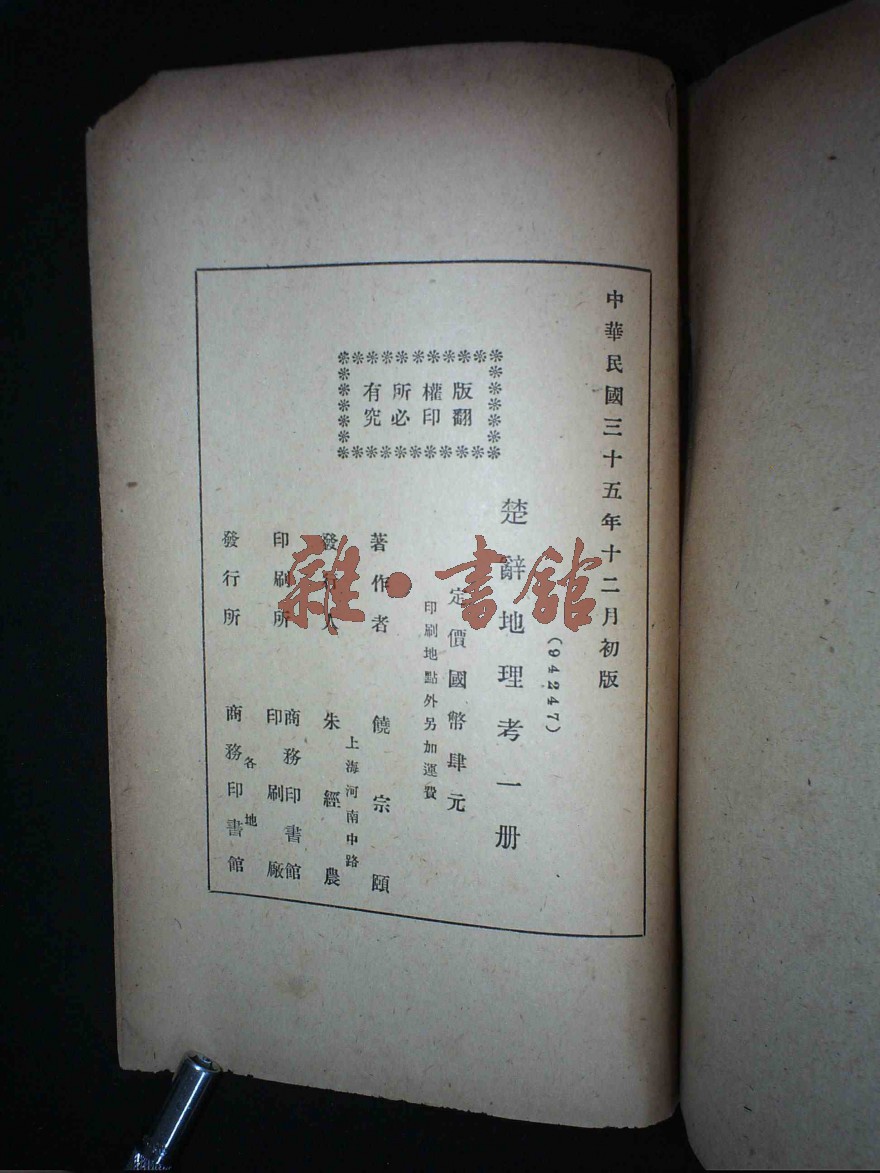 中華民國三十五年十二月初版
(94247)
楚辭地理考一册
定價國幣肆元
印刷地點外另加運費
版權所有
翻印必究
著作者 饒宗頤
上海河南中路
發行人 朱經農
印刷所 商務印書館
印刷廠
發行所 各地
商務印書館
雜·書館